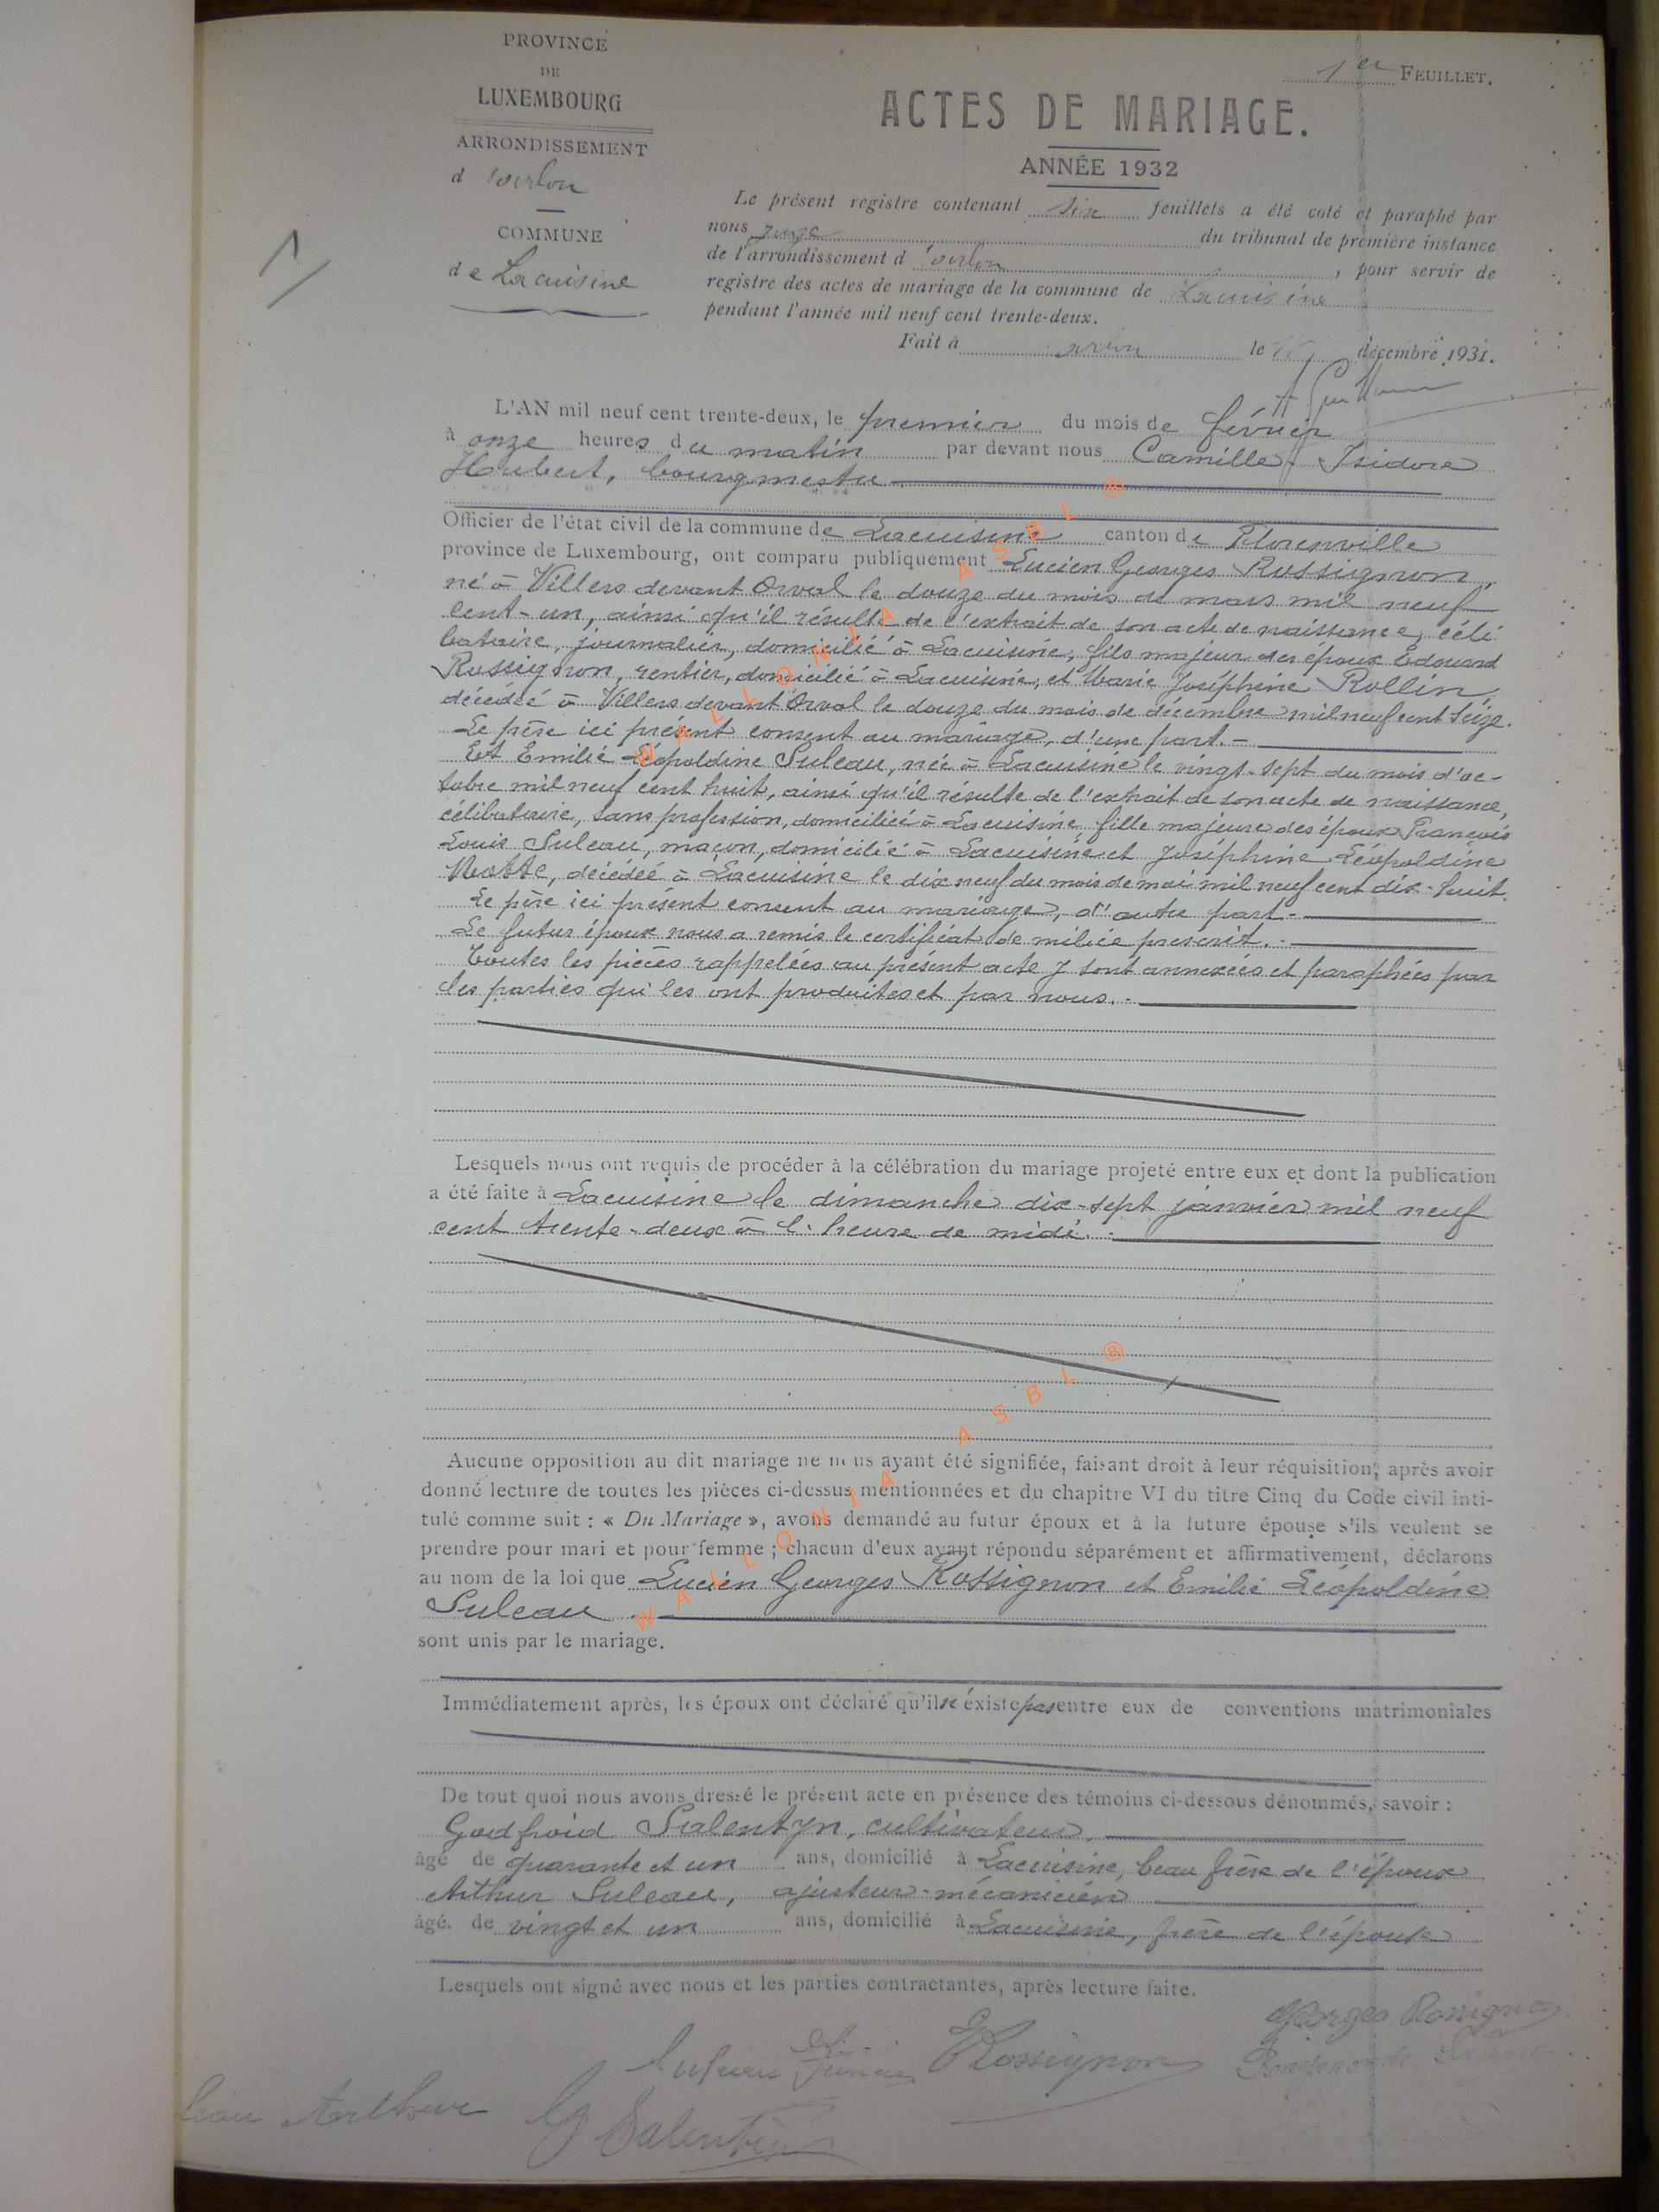 PROVINCE
DE
LUXEMBOURG
ARRONDISSEMENT
d'Arlon
COMMUNE
de Lacuisine
1
1er FEUILLET.
ACTES DE MARIAGE.
ANNÉE 1932
Le présent registre contenant six feuillets a été coté et paraphé par
nous juge du tribunal de première instance
de l'arrondissement d'Arlon, pour servir de
registre des actes de mariage de la commune de Lacuisine
pendant l'année mil neuf cent trente-deux.
Fait à Arlon le décembre 1931.
L'AN mil neuf cent trente-deux, le premier du mois de février
à onze heures du matin par devant nous Camille Isidore
Hubert, bourgmestre
Officier de l'état civil de la commune de Lacuisine canton de Florenville
province de Luxembourg, ont comparu publiquement Lucien Georges Rossignon,
né à Villers devant Orval le douze du mois de mars mil neuf
cent-un, ainsi qu'il résulte de l'extrait de son acte de naissance, céli
bataire, journalier, domicilié à Lacuisine, fils majeur des époux Edouard
Rossignon, rentier, domicilié à Lacuisine, et Marie Joséphine Rollin,
décédée à Villers devant Orval le douze du mois de décembre mil neuf cent seize.
Le père ici présent consent au mariage, d'une part.-
Et Emilie Léopoldine Suleau, née à Lacuisine le vingt-sept du mois d'oc-
tobre mil neuf cent huit, ainsi qu'il résulte de l'extrait de son acte de naissance,
célibataire, sans profession, domiciliée à Lacuisine, fille majeure des époux François
Louis Suleau, maçon, domicilié à Lacuisine et Joséphine Léopoldine
Watte, décédée à Lacuisine le dix neuf du mois de mai mil neuf cent dix-huit.
Le père ici présent consent au mariage, d'autre part.-
Le futur époux nous a remis le certificat de milice prescrit.-
Toutes les pièces rappelées au présent acte y sont annexées et paraphées par
les parties qui les ont produites et par nous.-
Lesquels nous ont requis de procéder à la célébration du mariage projeté entre eux et dont la publication
a été faite à Lacuisine le dimanche dix-sept janvier mil neuf
cent trente-deux à l'heure de midi.-
Aucune opposition au dit mariage ne nous ayant été signifiée, faisant droit à leur réquisition, après avoir
donné lecture de toutes les pièces ci-dessus mentionnées et du chapitre VI du titre Cinq du Code civil inti-
tulé comme suit : « Du Mariage », avons demandé au futur époux et à la future épouse s'ils veulent se
prendre pour mari et pour femme ; chacun d'eux ayant répondu séparément et affirmativement, déclarons
au nom de la loi que Lucien Georges Rossignon et Emilie Léopoldine
Suleau
sont unis par le mariage.
Immédiatement après, les époux ont déclaré qu'il n'existe pas entre eux de conventions matrimoniales
De tout quoi nous avons dressé le présent acte en présence des témoins ci-dessous dénommés, savoir :
Godfroid Salentyn, cultivateur,
âgé de quarante et un ans, domicilié à Lacuisine, beau frère de l'époux
Arthur Suleau, ajusteur-mécanicien
âgé de vingt et un ans, domicilié à Lacuisine, frère de l'épouse
Lesquels ont signé avec nous et les parties contractantes, après lecture faite.
Georges Rossignon
E Rossignon
Arthur
G Salentin
WALLONIA ASBL ®
WALLONIA ASBL ®